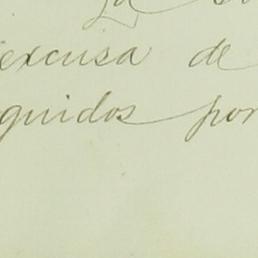 La
excusa de
guidos por